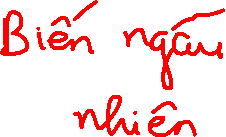 Biến ngẫu
nhiên